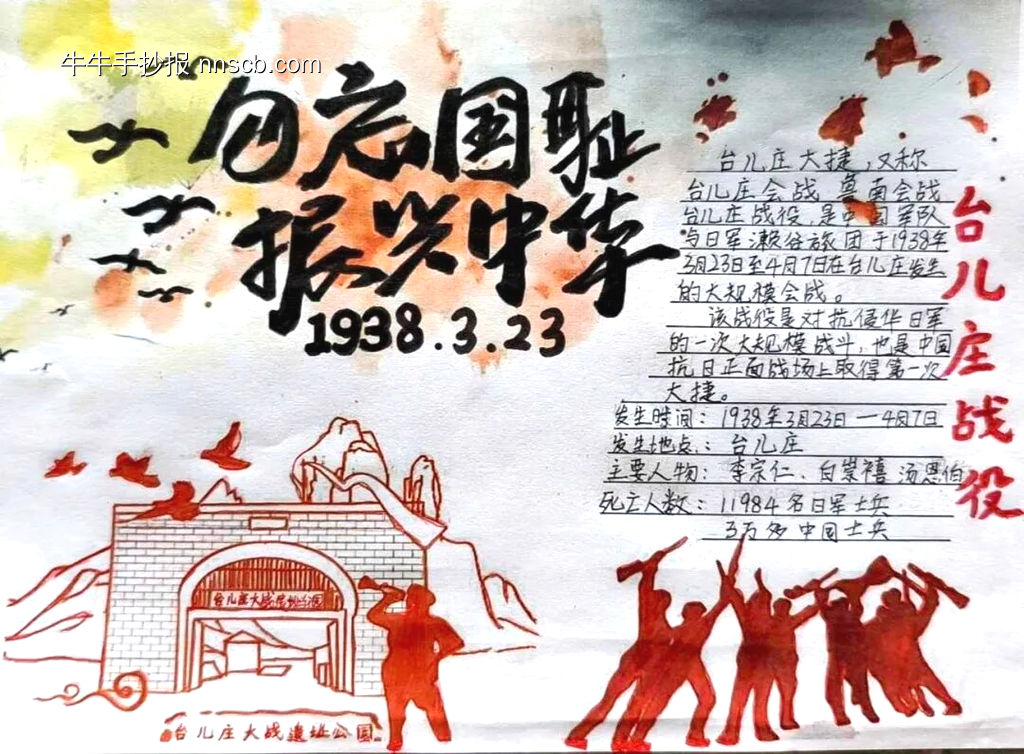 牛牛手抄报 nnscb.com
勿忘国耻
振兴中华
1938.3.23
台儿庄战役
台儿庄大捷,又称
台儿庄会战 鲁南会战
台儿庄战役,是中国军队
与日军濑谷旅团于1938年
3月23日至4月7日在台儿庄发生
的大规模会战。
该战役是对抗侵华日军
的一次大规模战斗,也是中国
抗日正面战场上取得第一次
大捷。
发生时间:1938年3月23日—4月7日
发生地点:台儿庄
主要人物:李宗仁、白崇禧 汤恩伯
死亡人数:11984名日军士兵
3万多中国士兵
台儿庄大战
台儿庄大战遗址公园